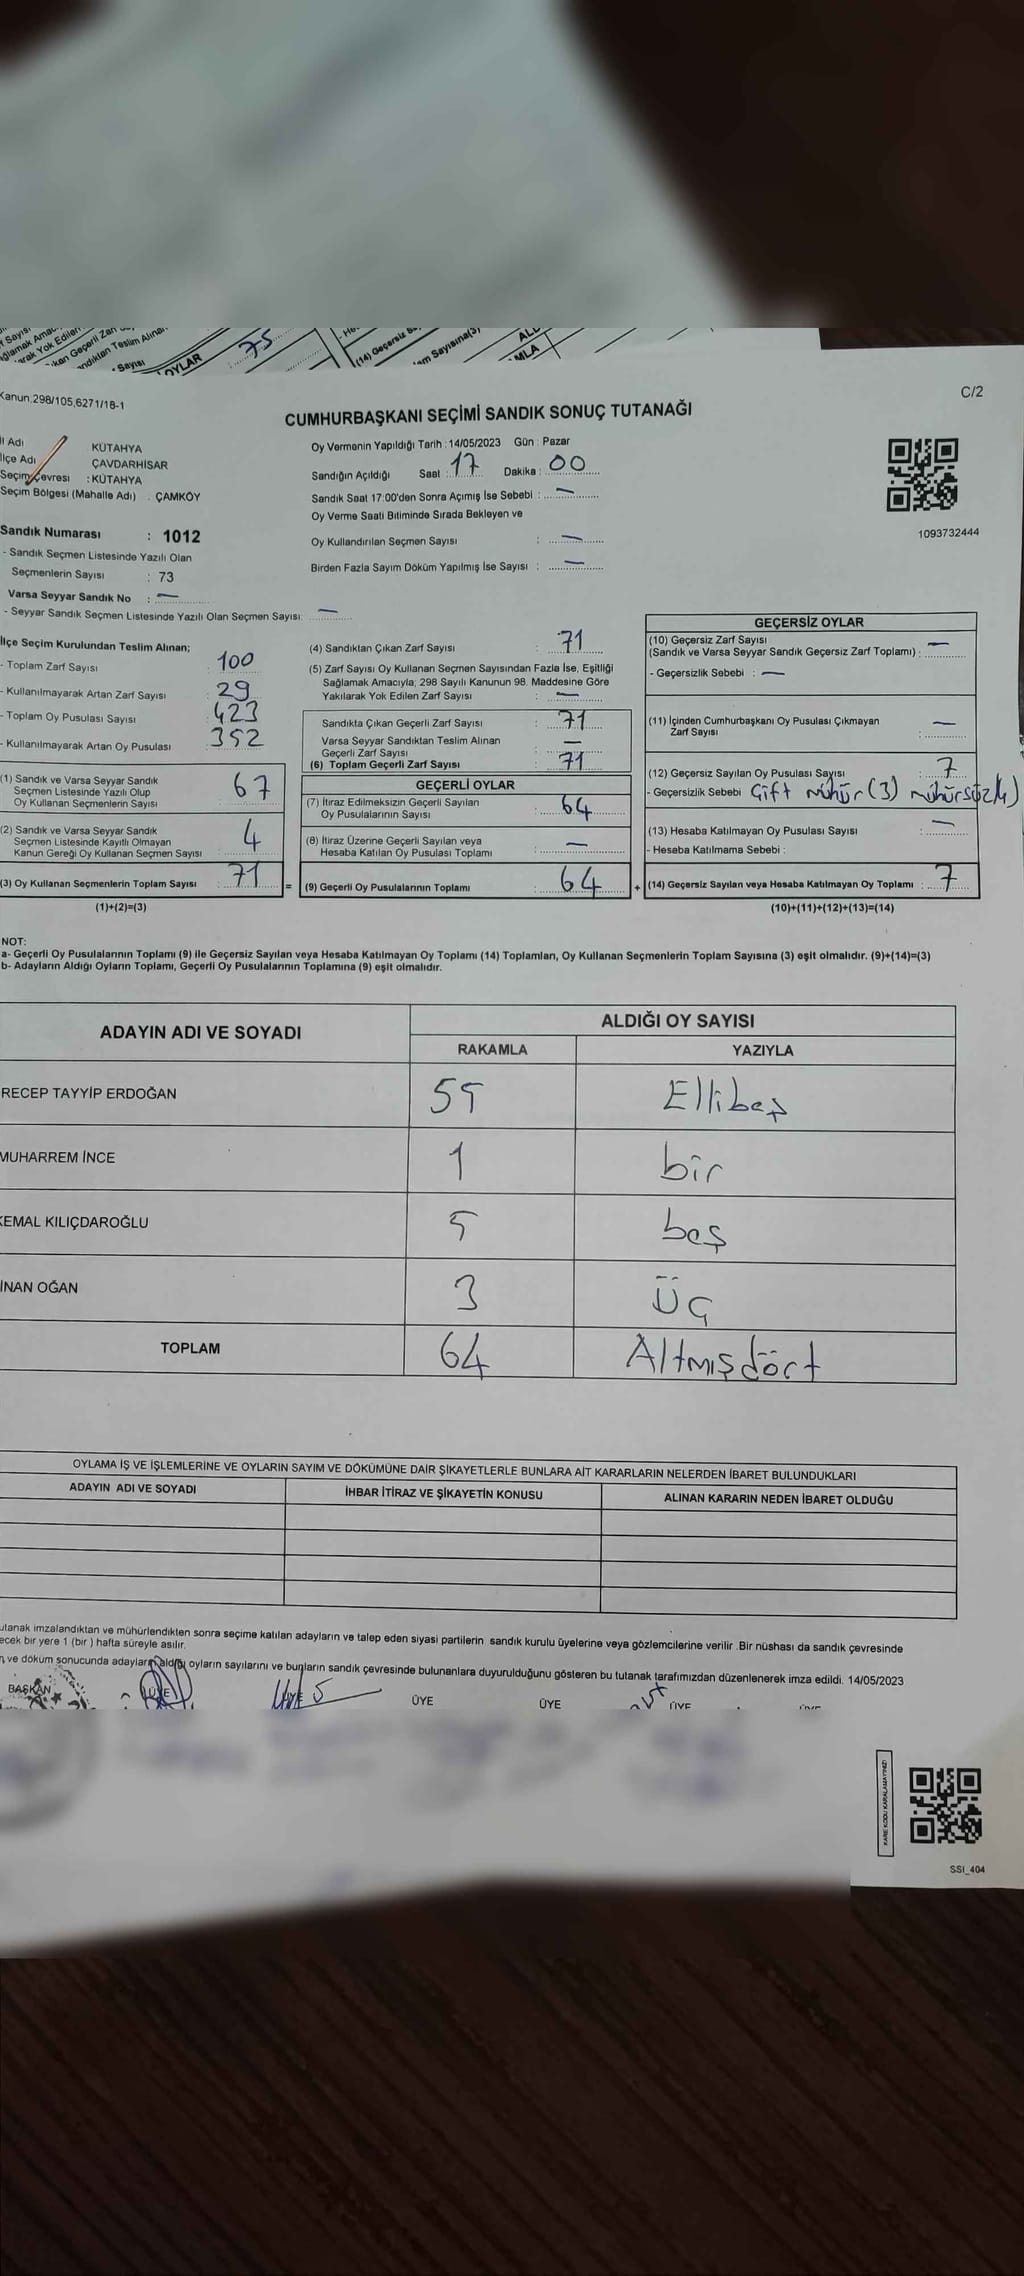 75
OYLAR
Kanun,298/105,6271/18-1
C/2
CUMHURBAŞKANI SEÇİMİ SANDIK SONUÇ TUTANAĞI
İl Adı KÜTAHYA
İlçe Adı ÇAVDARHİSAR
Seçim Çevresi : KÜTAHYA
Seçim Bölgesi (Mahalle Adı) : ÇAMKÖY
Oy Vermenin Yapıldığı Tarih : 14/05/2023 Gün : Pazar
Sandığın Açıldığı Saat : 17 Dakika : 00
Sandık Saat 17:00'den Sonra Açımış İse Sebebi : —
Oy Verme Saati Bitiminde Sırada Bekleyen ve
Oy Kullandırılan Seçmen Sayısı : —
Birden Fazla Sayım Döküm Yapılmış İse Sayısı : —
1093732444
Sandık Numarası : 1012
- Sandık Seçmen Listesinde Yazılı Olan
Seçmenlerin Sayısı : 73
Varsa Seyyar Sandık No : —
- Seyyar Sandık Seçmen Listesinde Yazılı Olan Seçmen Sayısı: —
İlçe Seçim Kurulundan Teslim Alınan;
- Toplam Zarf Sayısı : 100
- Kullanılmayarak Artan Zarf Sayısı : 29
- Toplam Oy Pusulası Sayısı : 423
- Kullanılmayarak Artan Oy Pusulası : 352
(1) Sandık ve Varsa Seyyar Sandık
Seçmen Listesinde Yazılı Olup
Oy Kullanan Seçmenlerin Sayısı : 67
(2) Sandık ve Varsa Seyyar Sandık
Seçmen Listesinde Kayıtlı Olmayan
Kanun Gereği Oy Kullanan Seçmen Sayısı : 4
(3) Oy Kullanan Seçmenlerin Toplam Sayısı : 71
(1)+(2)=(3)
(4) Sandıktan Çıkan Zarf Sayısı : 71
(5) Zarf Sayısı Oy Kullanan Seçmen Sayısından Fazla İse, Eşitliği
Sağlamak Amacıyla; 298 Sayılı Kanunun 98. Maddesine Göre
Yakılarak Yok Edilen Zarf Sayısı : —
Sandıkta Çıkan Geçerli Zarf Sayısı : 71
Varsa Seyyar Sandıktan Teslim Alınan
Geçerli Zarf Sayısı : —
(6) Toplam Geçerli Zarf Sayısı : 71
GEÇERLİ OYLAR
(7) İtiraz Edilmeksizin Geçerli Sayılan
Oy Pusulalarının Sayısı : 64
(8) İtiraz Üzerine Geçerli Sayılan veya
Hesaba Katılan Oy Pusulası Toplamı : —
= (9) Geçerli Oy Pusulalarının Toplamı : 64
GEÇERSİZ OYLAR
(10) Geçersiz Zarf Sayısı
(Sandık ve Varsa Seyyar Sandık Geçersiz Zarf Toplamı) : —
- Geçersizlik Sebebi : —
(11) İçinden Cumhurbaşkanı Oy Pusulası Çıkmayan
Zarf Sayısı : —
(12) Geçersiz Sayılan Oy Pusulası Sayısı : 7
- Geçersizlik Sebebi Çift mühür (3) mühürsüz (4)
(13) Hesaba Katılmayan Oy Pusulası Sayısı : —
- Hesaba Katılmama Sebebi :
+ (14) Geçersiz Sayılan veya Hesaba Katılmayan Oy Toplamı : 7
(10)+(11)+(12)+(13)=(14)
NOT:
a- Geçerli Oy Pusulalarının Toplamı (9) ile Geçersiz Sayılan veya Hesaba Katılmayan Oy Toplamı (14) Toplamları, Oy Kullanan Seçmenlerin Toplam Sayısına (3) eşit olmalıdır. (9)+(14)=(3)
b- Adayların Aldığı Oyların Toplamı, Geçerli Oy Pusulalarının Toplamına (9) eşit olmalıdır.
ADAYIN ADI VE SOYADI ALDIĞI OY SAYISI
RAKAMLA YAZIYLA
RECEP TAYYİP ERDOĞAN 55 Ellibeş
MUHARREM İNCE 1 bir
KEMAL KILIÇDAROĞLU 5 beş
İNAN OĞAN 3 Üç
TOPLAM 64 Altmışdört
OYLAMA İŞ VE İŞLEMLERİNE VE OYLARIN SAYIM VE DÖKÜMÜNE DAİR ŞİKAYETLERLE BUNLARA AİT KARARLARIN NELERDEN İBARET BULUNDUKLARI
ADAYIN ADI VE SOYADI İHBAR İTİRAZ VE ŞİKAYETİN KONUSU ALINAN KARARIN NEDEN İBARET OLDUĞU
utanak imzalandıktan ve mühürlendikten sonra seçime katılan adayların ve talep eden siyasi partilerin sandık kurulu üyelerine veya gözlemcilerine verilir .Bir nüshası da sandık çevresinde
ecek bir yere 1 (bir ) hafta süreyle asılır.
ve döküm sonucunda adayların aldığı oyların sayılarını ve bunların sandık çevresinde bulunanlara duyurulduğunu gösteren bu tutanak tarafımızdan düzenlenerek imza edildi. 14/05/2023
BAŞKAN ÜYE ÜYE ÜYE ÜYE ÜYE
KARE KODU KARALAMAYINIZ!
SSI_404